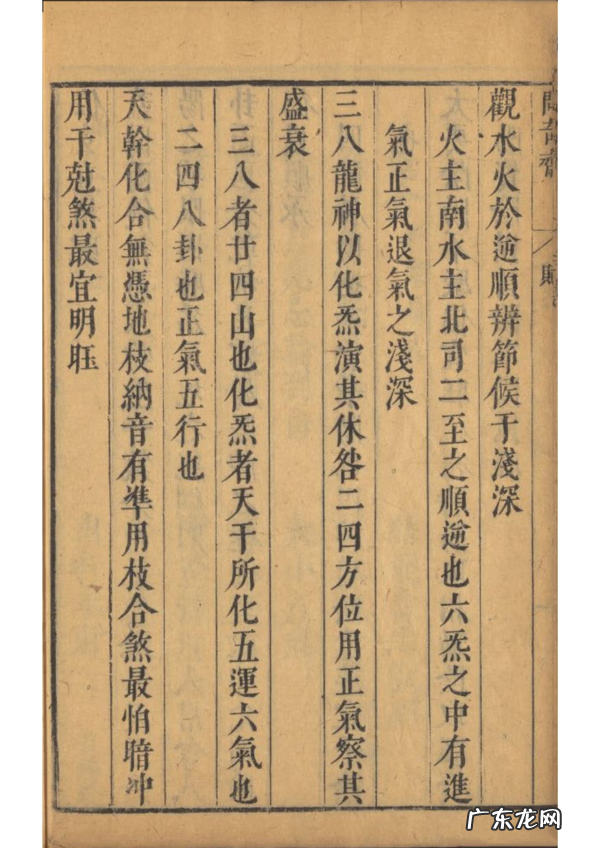 觀水火於逆順辨節候于淺深
火主南水主北司二至之順逆也六炁之中有進
氣正氣退氣之淺深
三八龍神以化炁演其休咎二四方位用正氣察其
盛衰
三八者廿四山也化炁者天干所化五運六氣也
二四八卦也正氣五行也
天幹化合無憑地枝納音有準用枝合煞最怕暗冲
用干尅煞最宜明旺
广东龙网